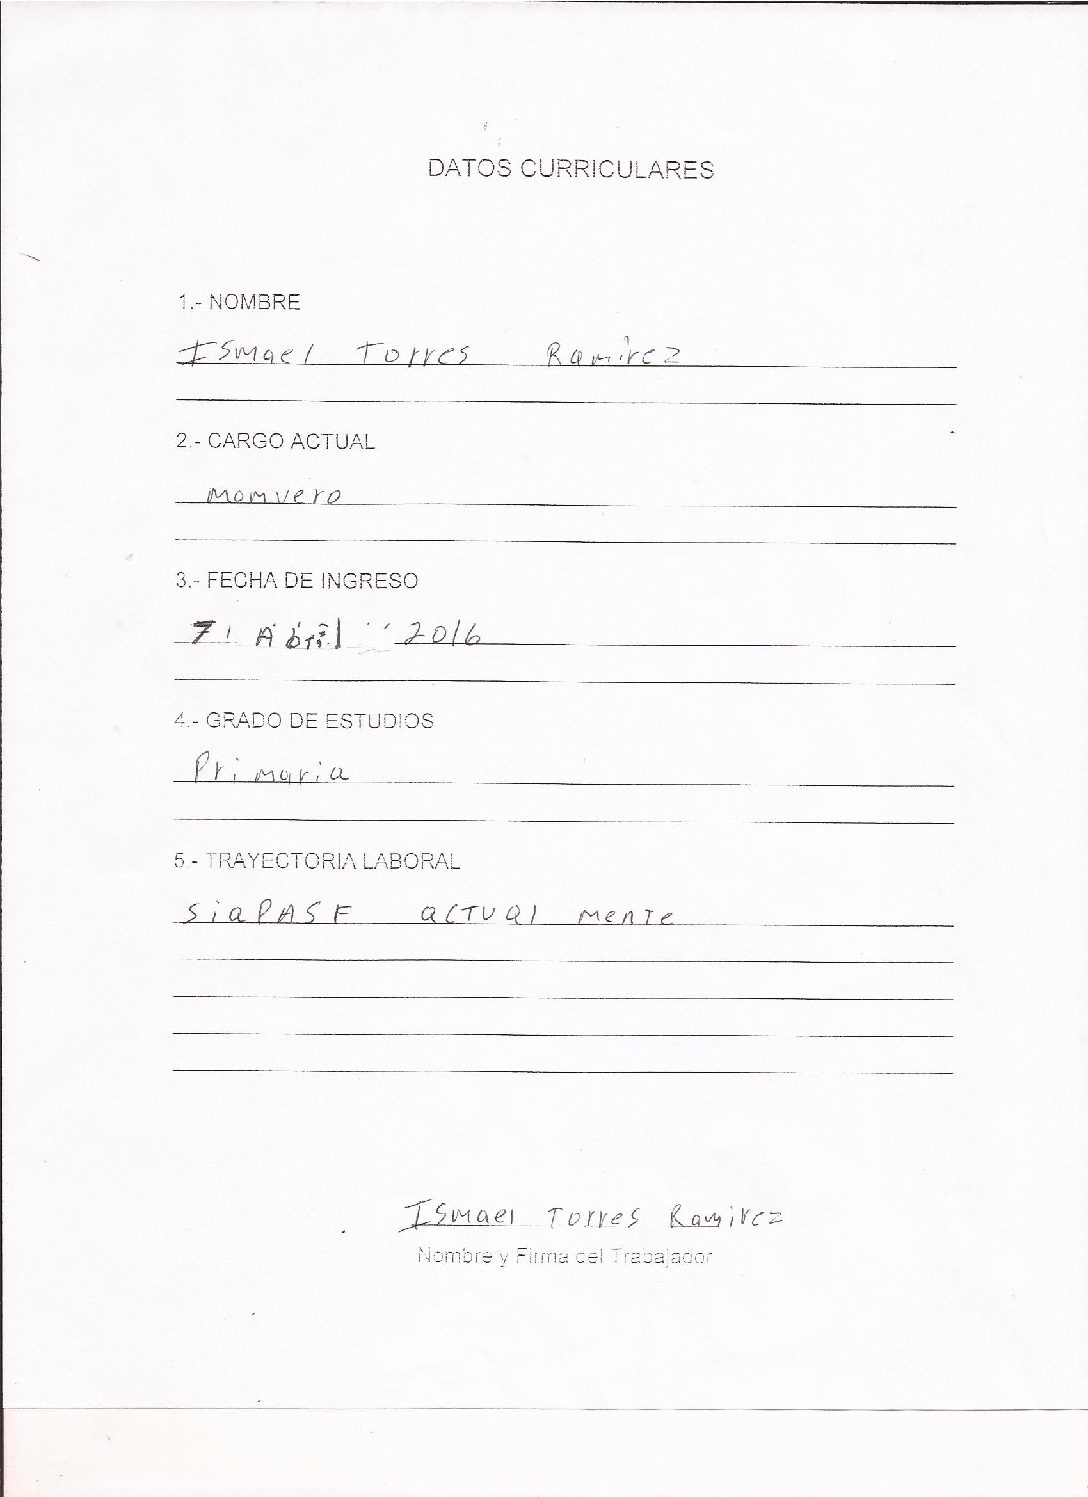 DATOS CURRICULARES
1.- NOMBRE
Ismael Torres Ramirez
2.- CARGO ACTUAL
Momvero
3.- FECHA DE INGRESO
7 Abril 2016
4.- GRADO DE ESTUDIOS
Primaria
5.- TRAYECTORIA LABORAL
SiaPASF actual mente
Ismael Torres Ramirez
Nombre y Firma del Trabajador